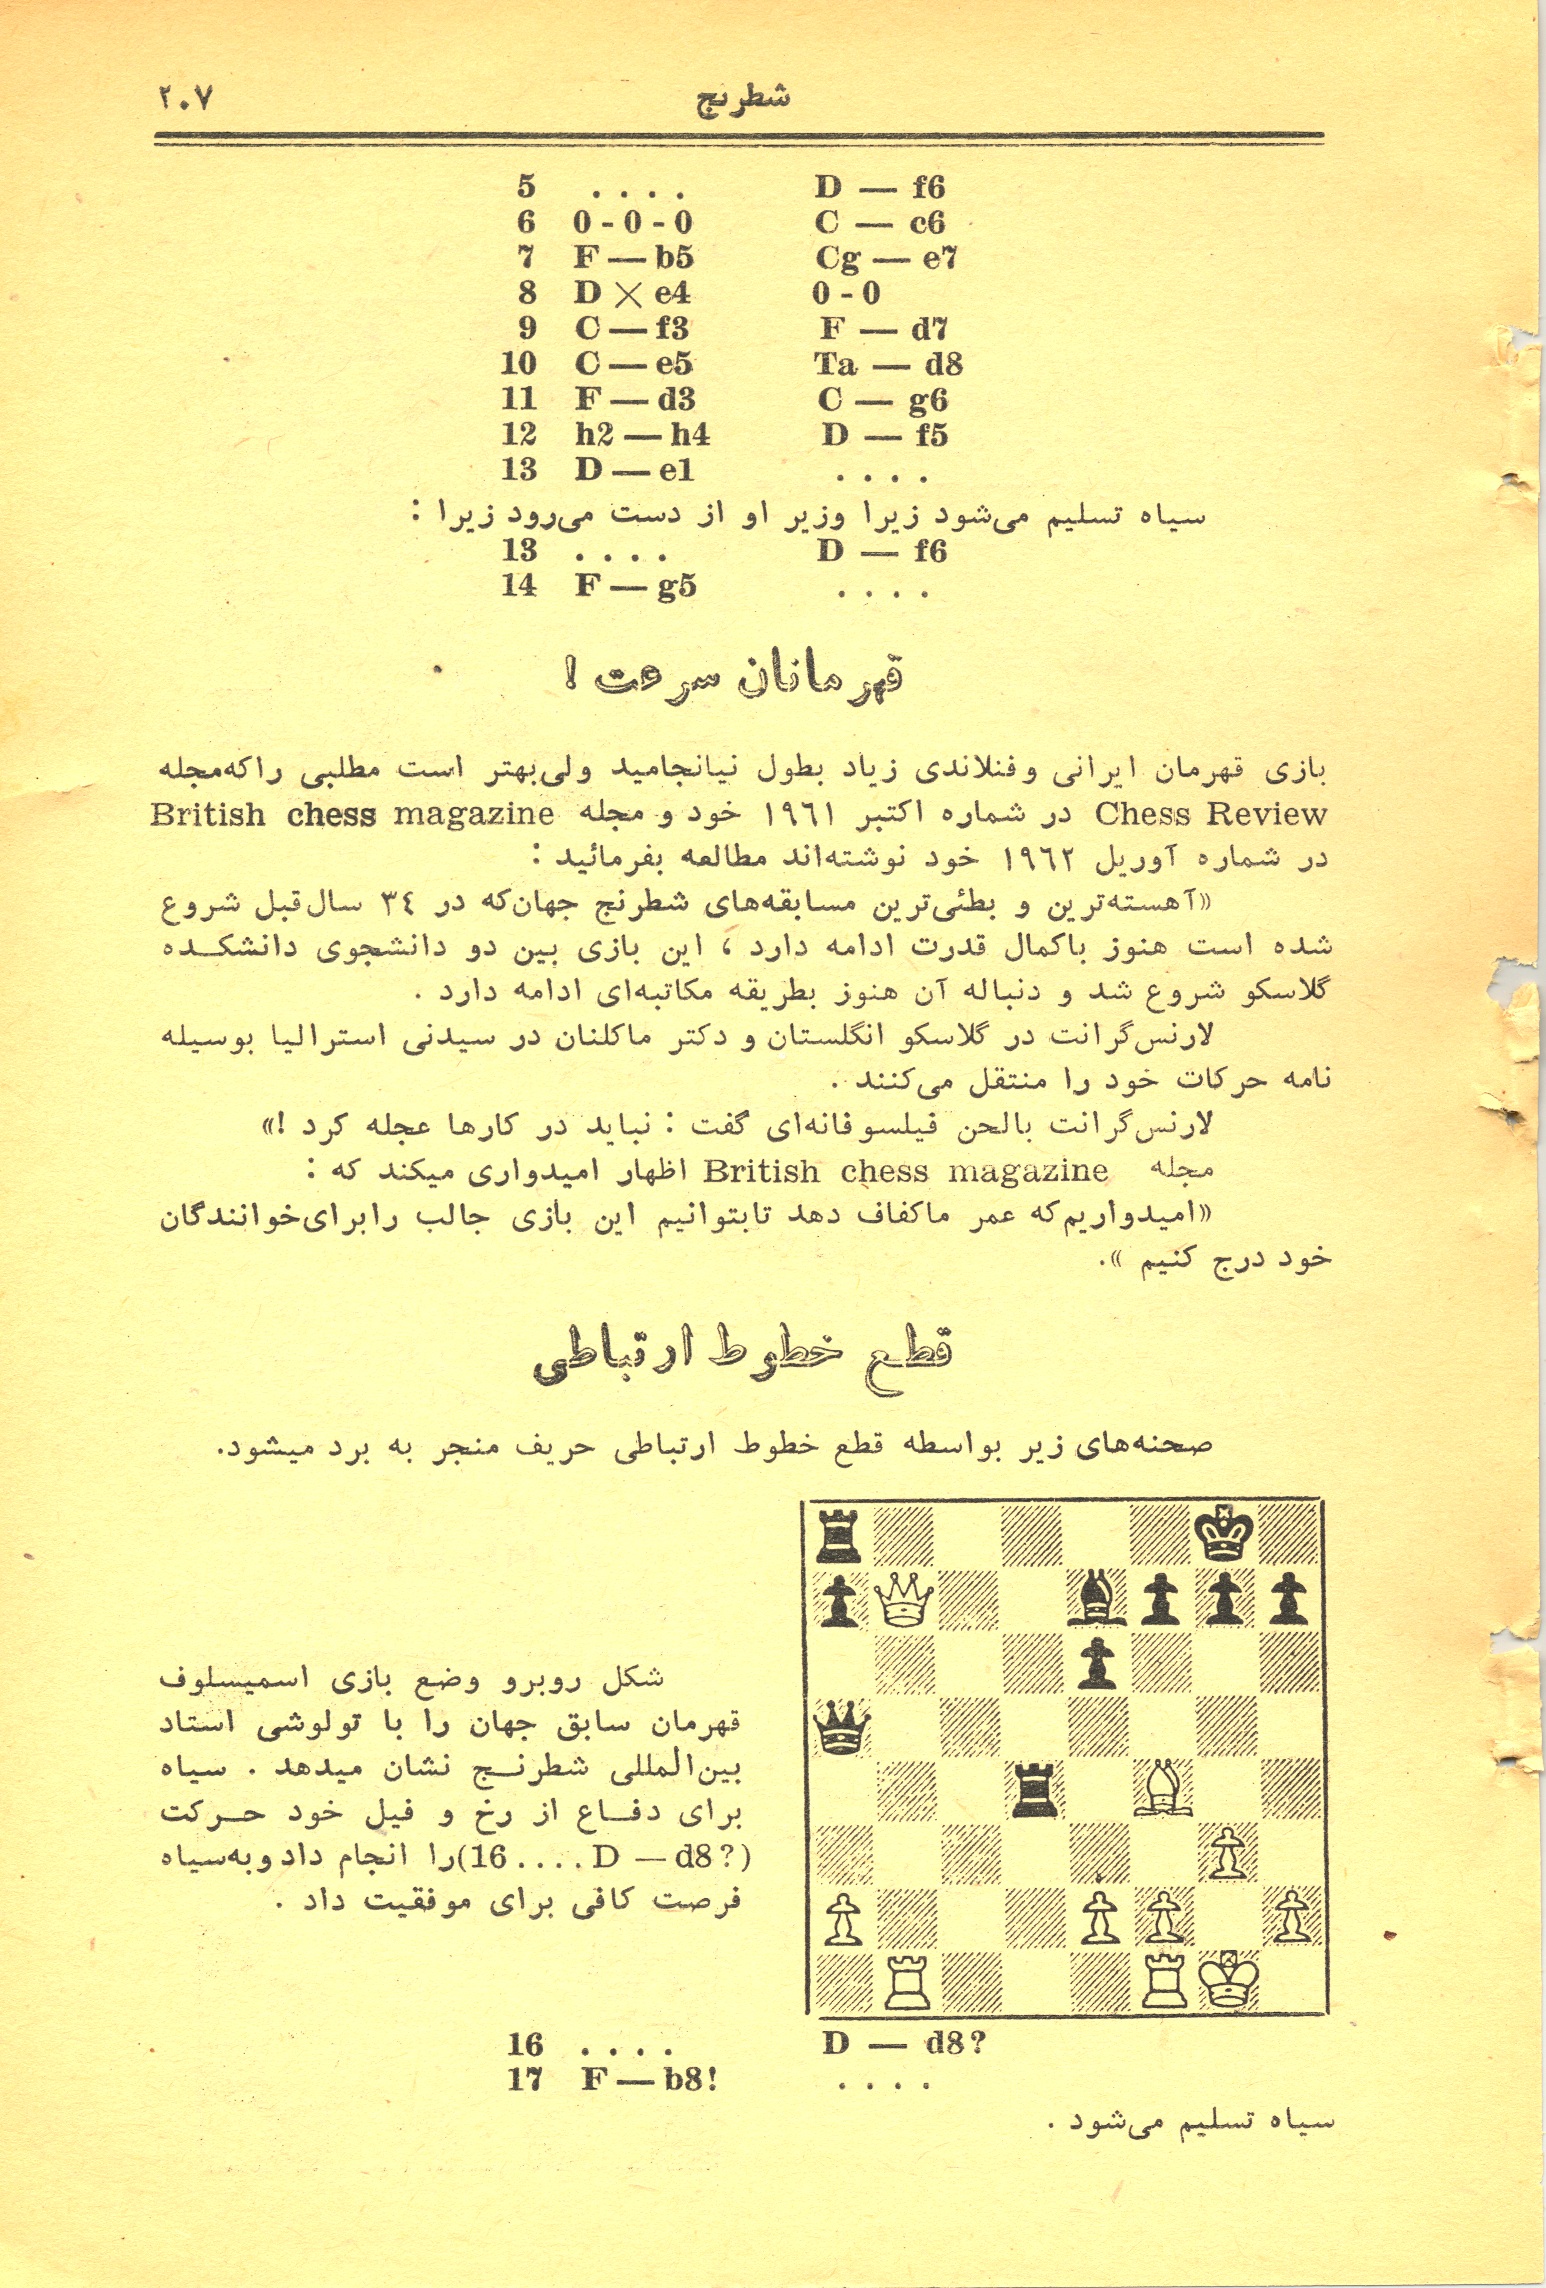 شطرنج ۲۰۷
5 .... D — f6
6 0-0-0 C — c6
7 F — b5 Cg — e7
8 D × e4 0-0
9 C — f3 F — d7
10 C — e5 Ta — d8
11 F — d3 C — g6
12 h2 — h4 D — f5
13 D — e1 ....
سیاه تسلیم می‌شود زیرا وزیر او از دست می‌رود زیرا :
13 .... D — f6
14 F — g5 ....
قهرمانان سرعت !
بازی قهرمان ایرانی و فنلاندی زیاد بطول نیانجامید ولی بهتر است مطلبی را که مجله
Chess Review در شماره اکتبر ۱۹۶۱ خود و مجله British chess magazine
در شماره آوریل ۱۹۶۲ خود نوشته‌اند مطالعه بفرمائید :
«آهسته‌ترین و بطئی‌ترین مسابقه‌های شطرنج جهان که در ۳٤ سال قبل شروع
شده است هنوز باکمال قدرت ادامه دارد ، این بازی بین دو دانشجوی دانشکده
گلاسکو شروع شد و دنباله آن هنوز بطریقه مکاتبه‌ای ادامه دارد .
لارنس گرانت در گلاسکو انگلستان و دکتر ماکلنان در سیدنی استرالیا بوسیله
نامه حرکات خود را منتقل می‌کنند .
لارنس گرانت بالحن فیلسوفانه‌ای گفت : نباید در کارها عجله کرد !»
مجله British chess magazine اظهار امیدواری میکند که :
«امیدواریم که عمر ماکفاف دهد تابتوانیم این بازی جالب را برای خوانندگان
خود درج کنیم ».
قطع خطوط ارتباطی
صحنه‌های زیر بواسطه قطع خطوط ارتباطی حریف منجر به برد میشود.
شکل روبرو وضع بازی اسمیسلوف
قهرمان سابق جهان را با تولوشی استاد
بین‌المللی شطرنج نشان میدهد . سیاه
برای دفاع از رخ و فیل خود حرکت
(16....D — d8?) را انجام داد و به سیاه
فرصت کافی برای موفقیت داد .
16 .... D — d8?
17 F — b8! ....
سیاه تسلیم می‌شود .